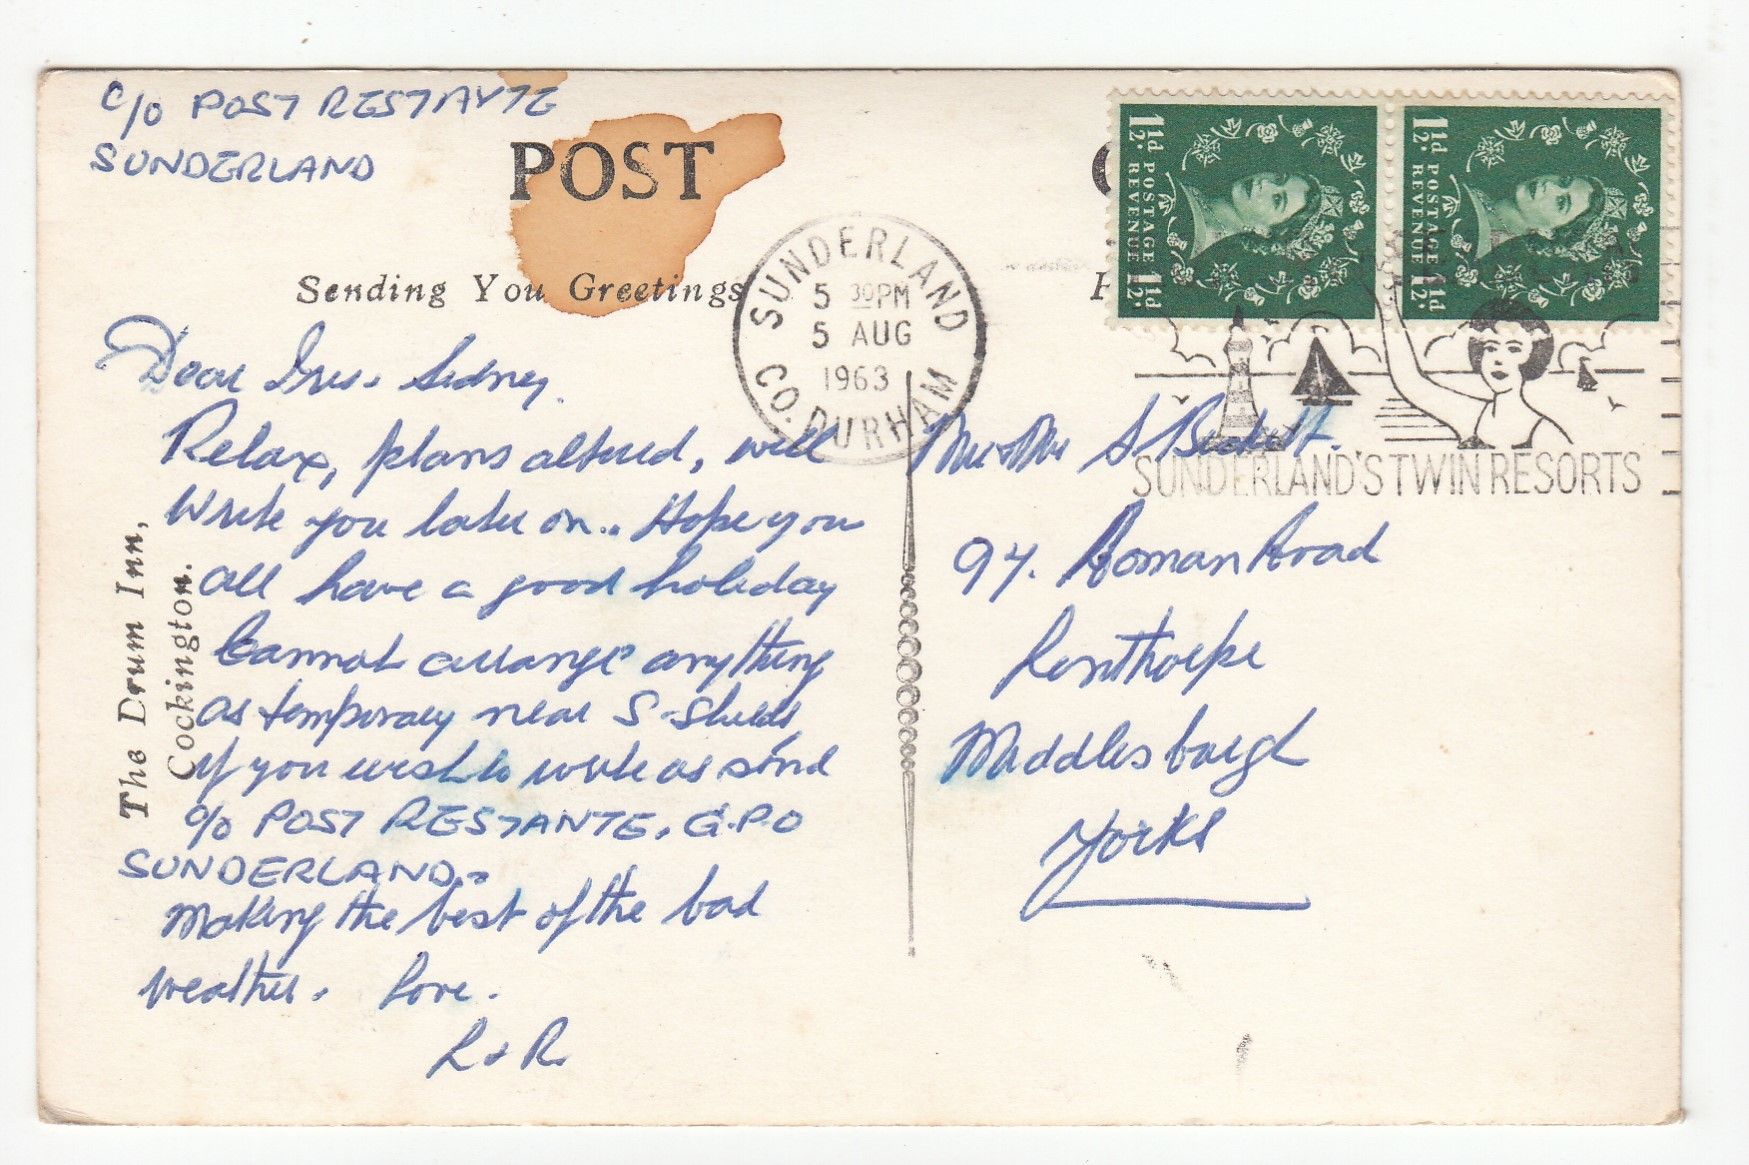 c/o POST RESTANTE
SUNDERLAND
POST
Sending You Greetings
SUNDERLAND
5 30PM
5 AUG
1963
CO. DURHAM
1½d POSTAGE REVENUE 1½d
1½d POSTAGE REVENUE 1½d
SUNDERLAND'S TWIN RESORTS
The Drum Inn,
Cockington.
Dear Iris. Sidney.
Relax, plans altered, will
write you later on.. Hope you
all have a good holiday
Cannot arrange anything
as temporary near S-Shields
If you wish to write as send
c/o POST RESTANTE, G.P.O
SUNDERLAND.
Making the best of the bad
weather. Love.
L & R.
Mr & Mrs S. Beckett.
94. Roman Road
Linthorpe
Middlesbough
Yorks